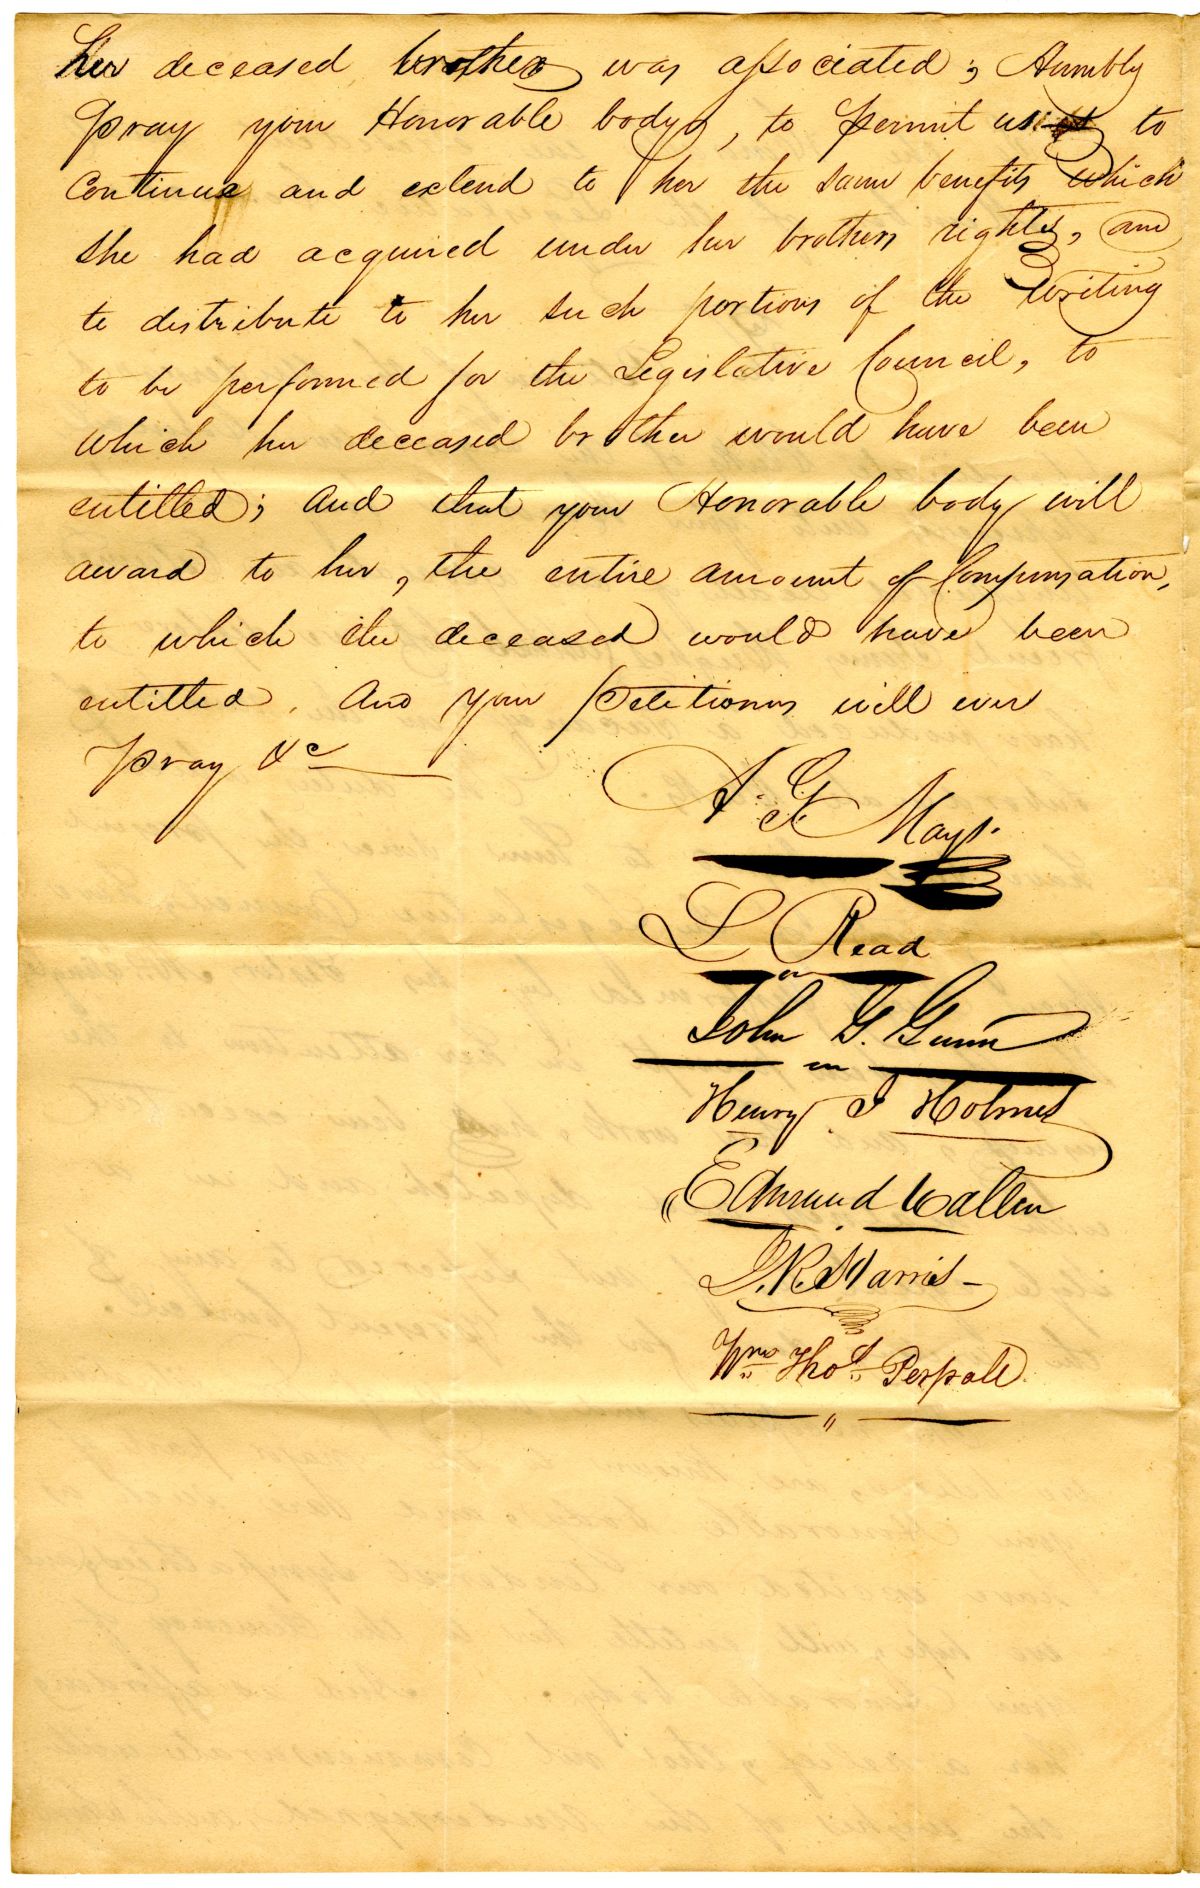 her deceased brother was associated; Humbly
pray your Honorable body, to permit us to
Continue and extend to her the same benefits which
She had acquired under her brothers rights, and
to distribute to her such portions of the writing
to be performed for the Legislative Council, to
which her deceased brother would have been
entitled; and that your Honorable body will
award to her, the entire amount of Compensation,
to which the deceased would have been
entitled. And your petitioners will ever
pray &c
A. G. Mays.
L Read
John G. Gunn
Henry J Holmes
Edmund Callen
J. R. Harris
Wm Thos. Perpall